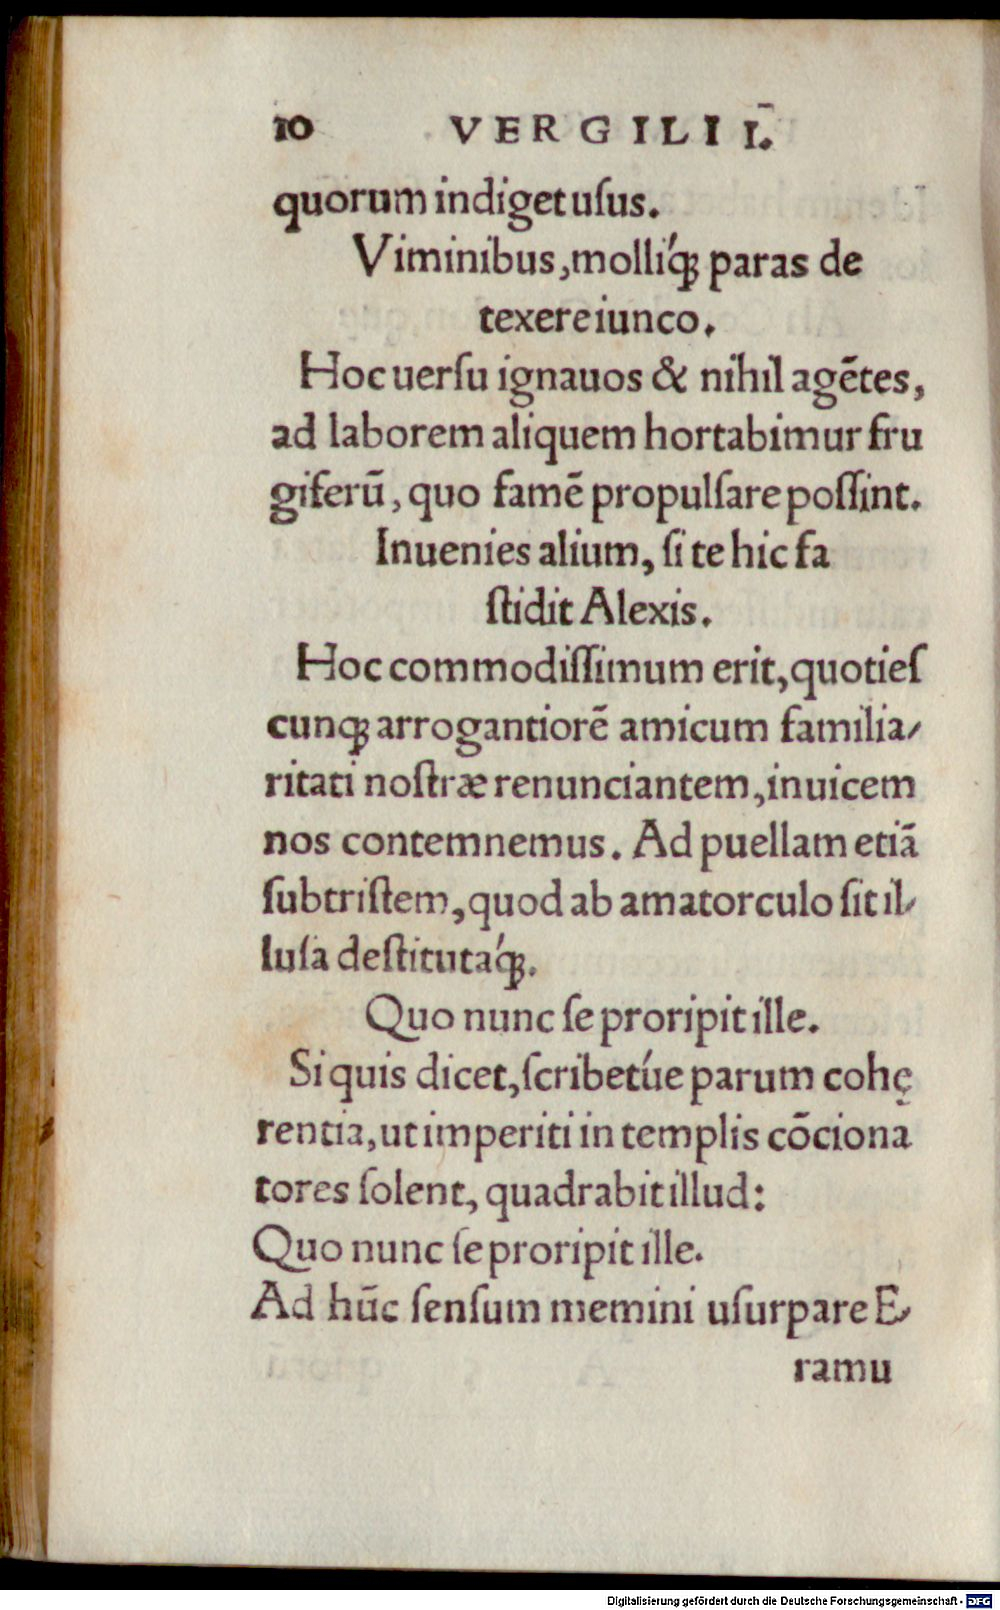 10 VERGILII I.
quorum indiget uſus.
Viminibus, molliq́ꝫ paras de
texere iunco.
Hoc uerſu ignauos & nihil agẽtes,
ad laborem aliquem hortabimur fru
giferũ, quo famẽ propulſare poſſint.
Inuenies alium, ſi te hic fa
ſtidit Alexis.
Hoc commodiſſimum erit, quotieſ
cunqꝫ arrogantiorẽ amicum familia/
ritati noſtræ renunciantem, inuicem
nos contemnemus. Ad puellam etiã
ſubtriſtem, quod ab amatorculo ſit il/
luſa deſtitutaq́ꝫ.
Quo nunc ſe proripit ille.
Si quis dicet, ſcribetúe parum cohę
rentia, ut imperiti in templis cõciona
tores ſolent, quadrabit illud:
Quo nunc ſe proripit ille.
Ad hũc ſenſum memini uſurpare E/
ramu
Digitalisierung gefördert durch die Deutsche Forschungsgemeinschaft - DFG